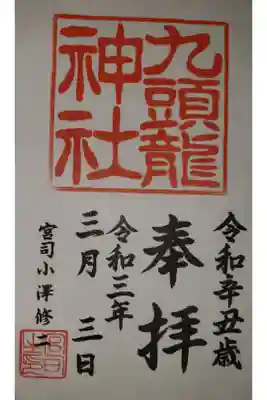 九頭龍
神社
令和辛丑歳
奉拝
令和三年
三月 三日
宮司 小澤修二